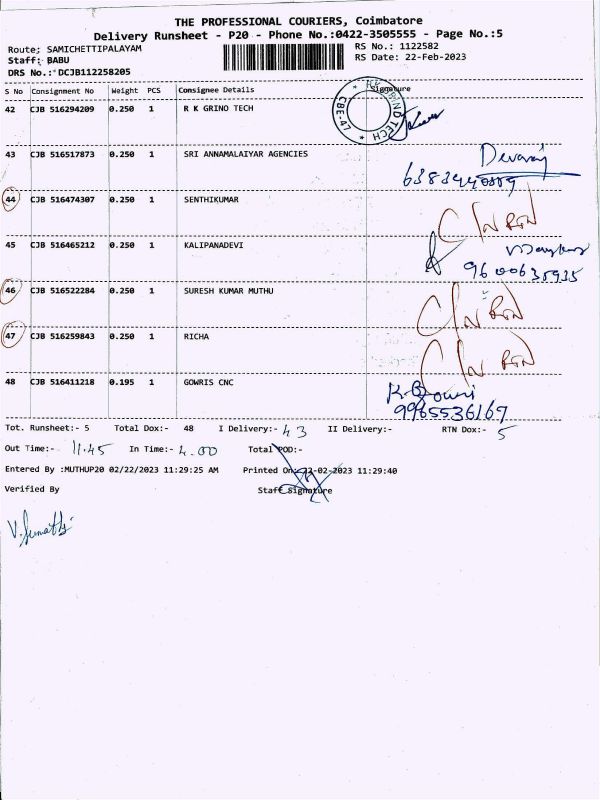 THE PROFESSIONAL COURIERS, Coimbatore
Delivery Runsheet - P20 - Phone No.:0422-3505555 - Page No.:5
Route; SAMICHETTIPALAYAM RS No.: 1122582
Staff: BABU RS Date: 22-Feb-2023
DRS No.: DCJB112258205
S No Consignment No Weight PCS Consignee Details Signature
42 CJB 516294209 0.250 1 R K GRINO TECH
CBE-47
43 CJB 516517873 0.250 1 SRI ANNAMALAIYAR AGENCIES Devaraj
44 CJB 516474307 0.250 1 SENTHIKUMAR
45 CJB 516465212 0.250 1 KALIPANADEVI
9600635935
46 CJB 516522284 0.250 1 SURESH KUMAR MUTHU
47 CJB 516259843 0.250 1 RICHA
48 CJB 516411218 0.195 1 GOWRIS CNC K. Gowri
9965536167
Tot. Runsheet:- 5 Total Dox:- 48 I Delivery:- 43 II Delivery:- RTN Dox:- 5
Out Time:- 11.45 In Time:- 4.00 Total POD:-
Entered By :MUTHUP20 02/22/2023 11:29:25 AM Printed On:22-02-2023 11:29:40
Verified By Staff Signature
V. Sumathi